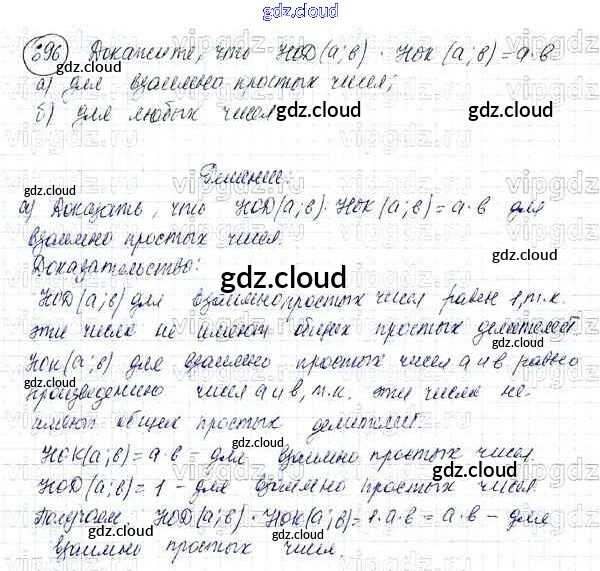 gdz.cloud
396 Докажите, что НОD(а;в) · НОК(а;в)=а·в
а) для взаимно простых чисел;
б) для любых чисел
Решение.
а) Доказать, что НОD(а;в)·НОК(а;в)=а·в для
взаимно простых чисел.
Доказательство:
НОD(а;в) для взаимно простых чисел равен 1, т.к.
эти числа не имеют общих простых делителей.
НОК(а;в) для взаимно простых чисел а и в равно
произведению чисел а и в, т.к. эти числа не
имеют общих простых делителей.
НОК(а;в)=а·в – для взаимно простых чисел.
НОD(а;в)=1 – для взаимно простых чисел.
Получаем, НОD(а;в)·НОК(а;в)=1·а·в=а·в – для
взаимно простых чисел.